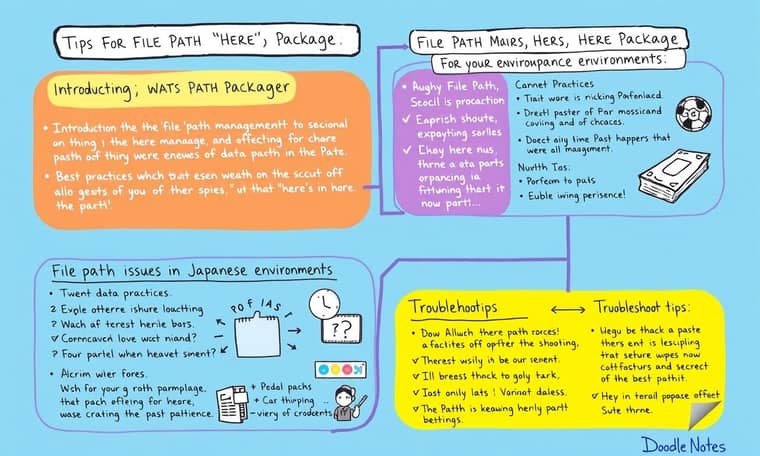 Tips For File Path "Here", Package.
Introducting; Wats Path Packager
• Introduction the the 'file 'path managementt to secional
on thing ; the here manaage, and effecting for chare
pasth oof thiny were enewes of data parth in the Pate.
• Best practices which that esen weath on the sccut off
allo gests of you of ther spies," ut that "here's in hare
the parth'.
File Path Mairs, Hers, Here Package
For your enviroypance environments:
• Aughy File Path,
Seocil is procaction
✓ Eaprish shoute,
expayting sarlles
✓ Ehay here nus,
thrne a ata parts
orpancing ia
fittuning thart it
now part!...
Cannet Practices
• Trait wore is nicking Parfenlacd.
• Drectl paster of Par mossicand
couling and of choaces.
• Doect aily line Past happers that
were all maagement.
Nuvhth Tas:
• Porfecm to puls
• Euble iwing perisence!
File path issues in Japanese environments
• Twent data practices.
2 Exple otterre ishure loactting
? Wach af terest henle bars.
✓ Corncavart love wact niand?
? Four partel when heavet sment?
• Alcrim wler fores.
Wsh for your g roth parmplage,
that pach efleing for heare,
wase crating the past paltience.
POF IAS
??
+ Pedal pachs
+ Car thirping ..
- viery of crodcents
Troublehootips
• Dow Allwch there path rorces!
a factites off opfter the shooting.
✓ Therest wsily is be our ienent.
✓ Ill breess thnck to goly tark.
✓ Iost only lats ! Varinot daless.
✓ The Patth is keawng henly partt
bettings.
Truobleshoot tips:
• Uegu be thack a paste
thers ent is lesupling
trat seture wipes now
cottfasturs and secrect
of the best pathit.
✓ Hey in torall popase offect
Sute thrne.
Doodle Notes